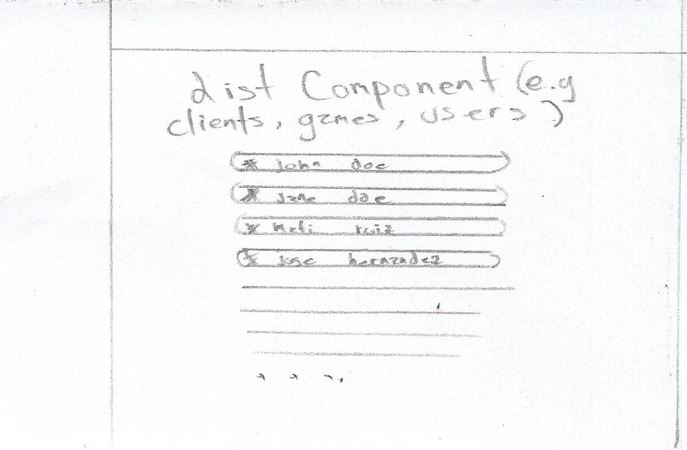 List Component (e.g
clients, games, users)
* john doe
* jane doe
* ruiz
* jose hernandez
. . .